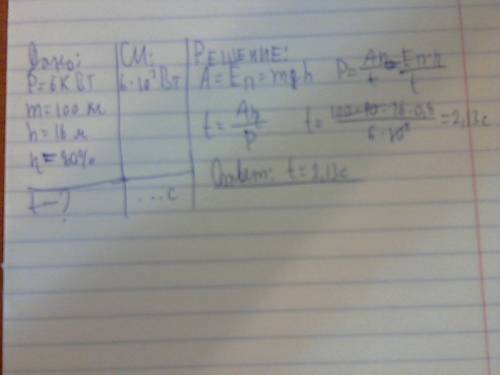 Дано:
P = 6 кВт
m = 100 м
h = 16 м
η = 80%
t – ?
СИ:
6·10³ Вт
... с
РЕШЕНИЕ:
A = Eп = mgh P = Aη/t = Eп·η/t
t = Aη/P t = 100·10·16·0,8/6·10³ = 2,13с
Ответ: t = 2,13с